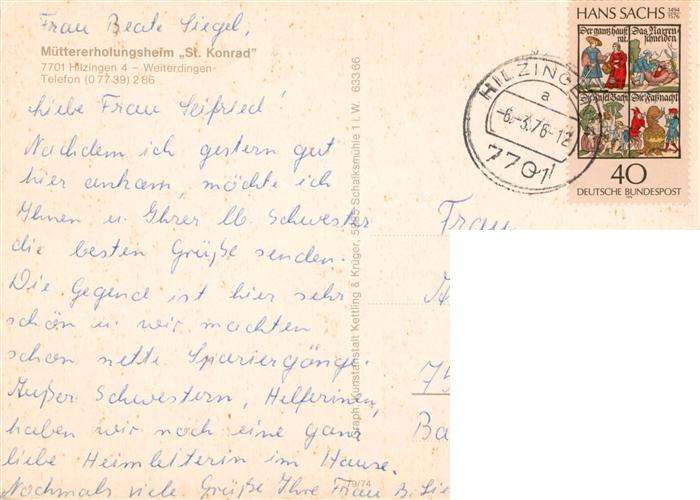 Frau Beate Siegel,
Müttererholungsheim „St. Konrad"
7701 Hilzingen 4 – Weiterdingen-
Telefon (0 77 39) 2 86
liebe Frau Seifried!
Nachdem ich gestern gut
hier ankam, möchte ich
Ihnen u. Ihrer lb Schwester
die besten Grüße senden.
Die Gegend ist hier sehr
schön u. wir machten
schon nette Spaziergänge.
Außer Schwestern, Helferinnen,
haben wir noch eine ganz
liebe Heimleiterin im Hause.
Nochmals viele Grüße Ihre Frau B. Sie
Graph. Kunstanstalt Kettling & Krüger, 5885 Schalksmühle 1 i. W. 633 66
79/74
HILZINGE
a
-6.-3.76-12
7701
HANS SACHS 1494 1576
Der gantz haußrat.
Das Narrenschneiden
Die Faßnacht
40
DEUTSCHE BUNDESPOST
Frau
75
Ba